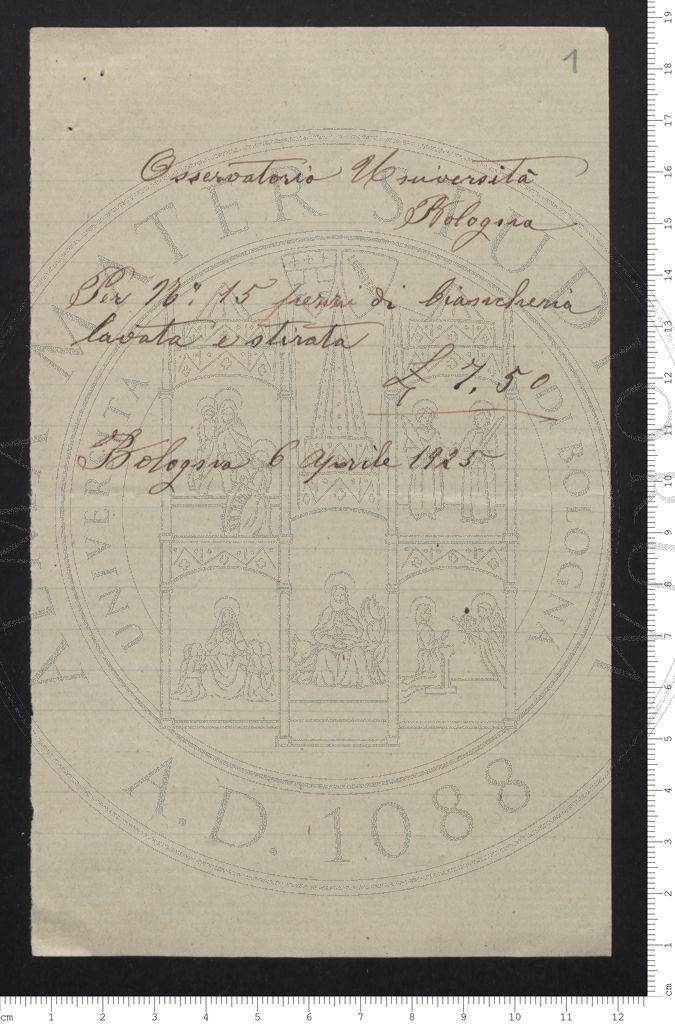 1
Osservatorio Università
Bologna
Per N.° 15 pezzi di biancheria
lavata e stirata
£ 7,50
Bologna 6 Aprile 1925
ALMA MATER STUDIORUM
UNIVERSITÀ DI BOLOGNA
A.D. 1088
cm 1 2 3 4 5 6 7 8 9 10 11 12
cm 1 2 3 4 5 6 7 8 9 10 11 12 13 14 15 16 17 18 19